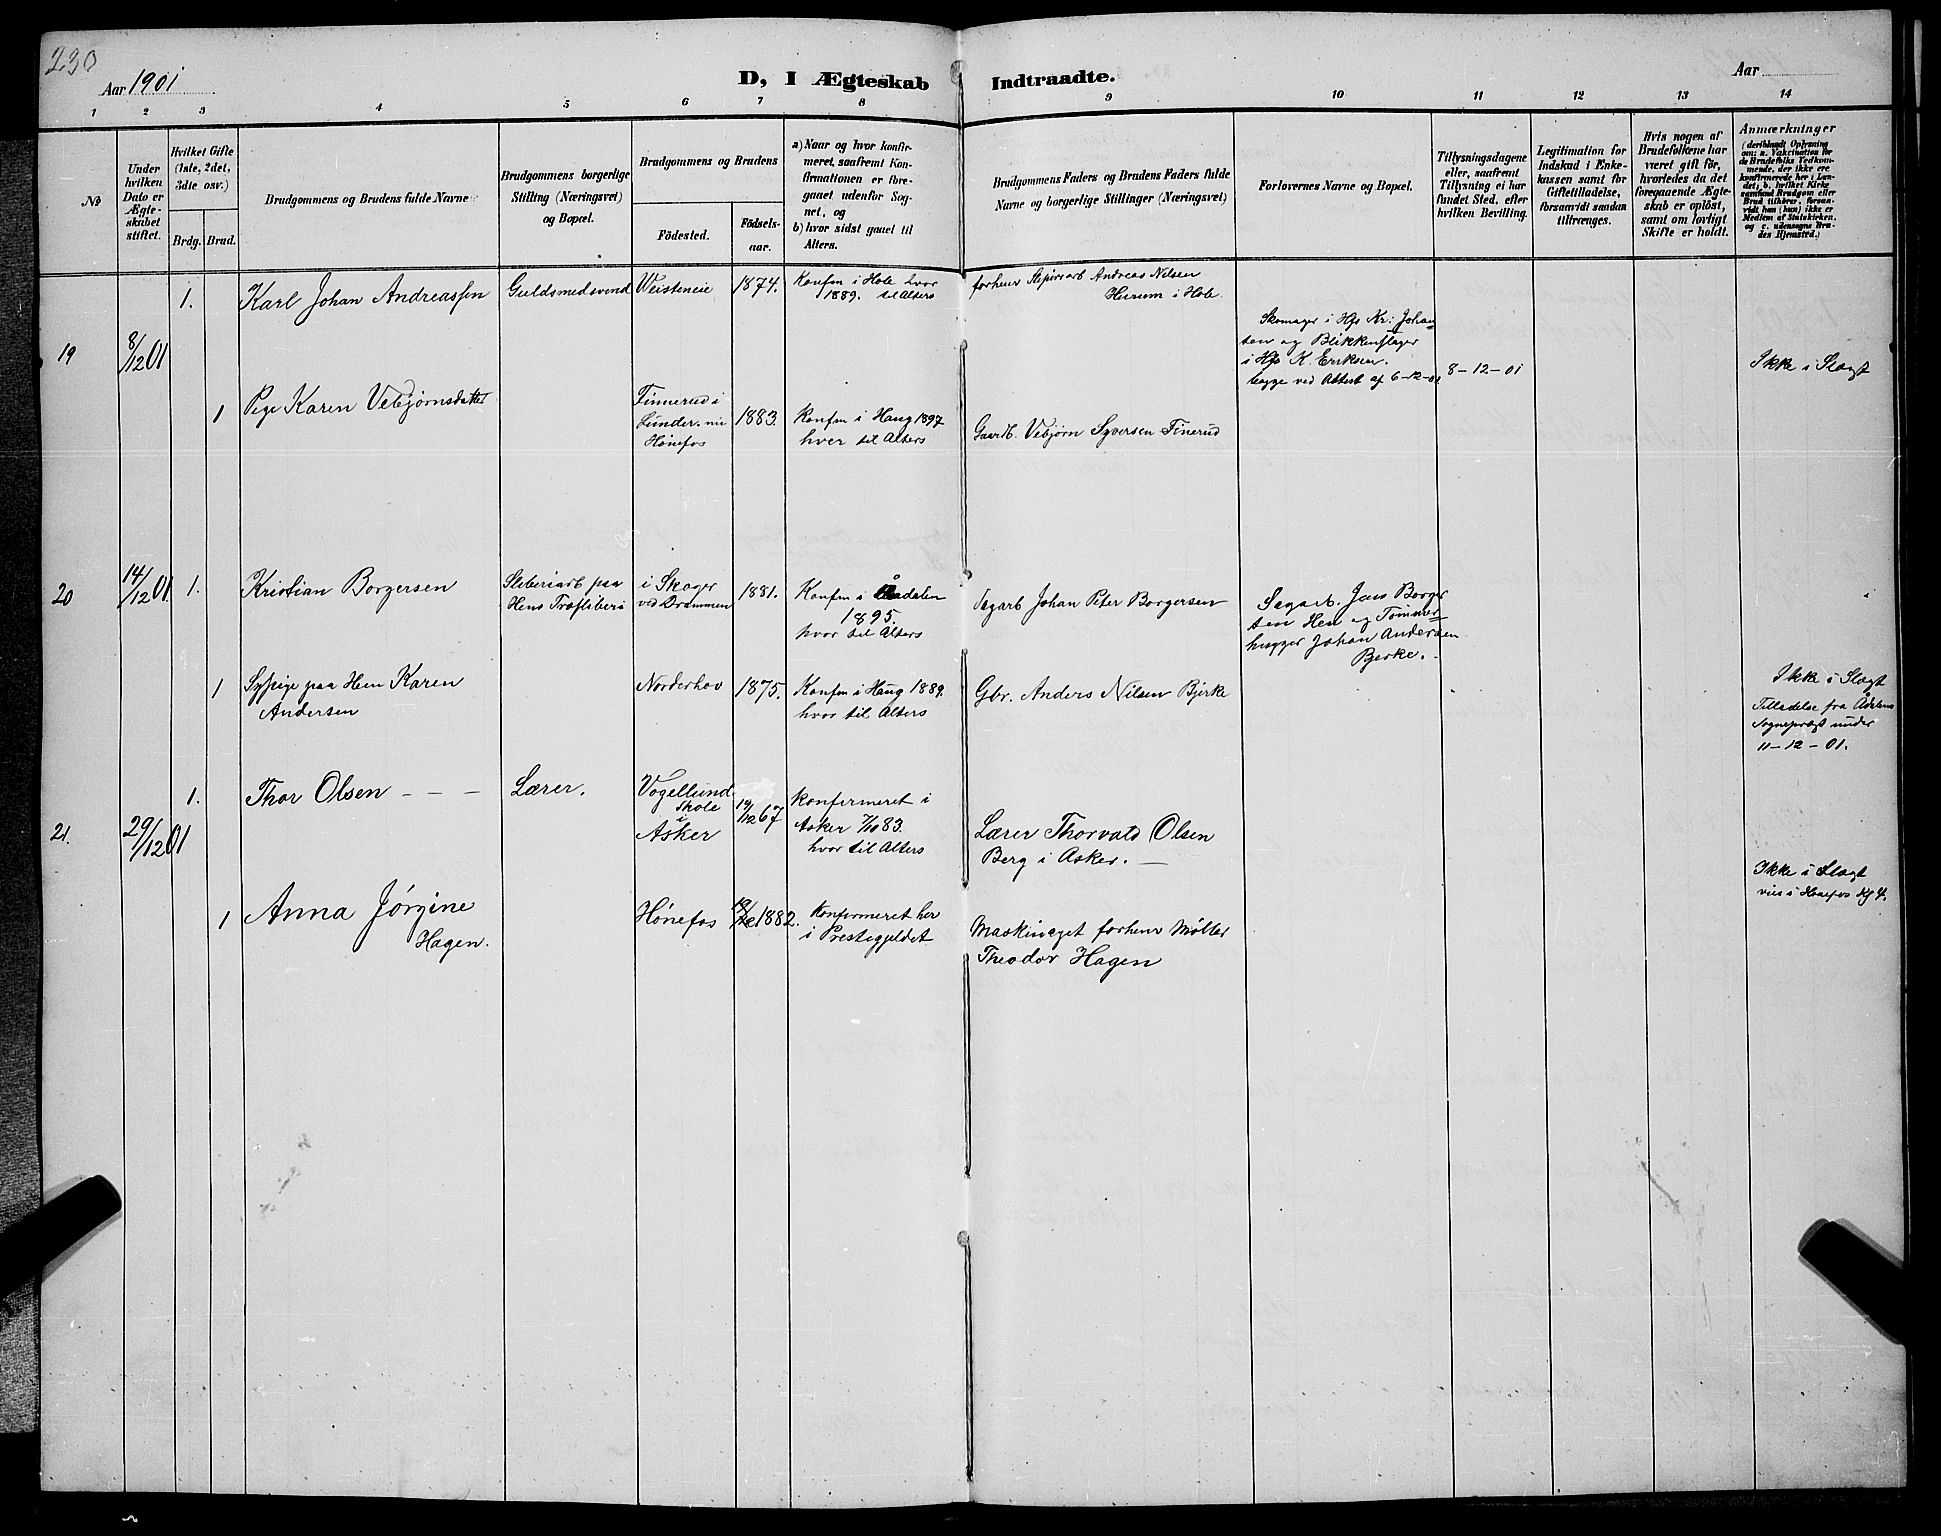 230
Aar 1901
D, I Ægteskab Indtraadte.
Aar
1 2 3 4 5 6 7 8 9 10 11 12 13 14
No
Under
hvilken
Dato er
Ægte-
skabet
stiftet.
Hvilket Gifte
(1ste, 2det,
3die osv.)
Brdg. Brud.
Brudgommens og Brudens fulde Navne
Brudgommens borgerlige
Stilling (Næringsvei)
og Bopæl.
Brudgommens og Brudens
Fødested.
Fødsels-
aar.
a) Naar og hvor konfir-
meret, saafremt Kon-
firmationen er fore-
gaaet udenfor Sog-
net, og
b) hvor sidst gaaet til
Alters.
Brudgommens Faders og Brudens Faders fulde
Navne og borgerlige Stillinger (Næringsvei)
Forlovernes Navne og Bopæl.
Tillysningsdagene
eller, saafremt
Tillysning ei har
fundet Sted, efter
hvilken Bevilling.
Legitimation for
Indskud i Enke-
kassen samt for
Giftetilladelse,
forsaavidt saadan
tiltrænges.
Hvis nogen af
Brudefolkene har
været gift før,
hvorledes da det
foregaaende Ægte-
skab er opløst,
samt om lovligt
Skifte er holdt.
Anmærkninger
(deriblandt Oplysning
om: a. Vaksination for
de Brudefolks Vedkom-
mende, der ikke ere
konfirmerede her i Lan-
det; b. hvilket Kirke
samfund Brudgom eller
Brud tilhører, forsaa-
vidt han (hun) ikke er
Medlem af Statskirken,
og c. udensogns Bru-
des Hjemsted.)
19
8/12 01
1.
Karl Johan Andreassen
Guldsmedsvend
1874.
Konfm i Hole hvor
1889. til Alters
forhenv Andreas Nilsen
Hurum i Hole
Skomager i Hfs Kr: Johan-
sen og Blikkenslager
i Hfs K. Eriksen.
begge ved Attest af 6-12-01
8-12-01
Ikke i Slægt
1
Pige Karen Vebjørnsdatter
Finnerud i
Lunder. nu
Hønefos
1883.
Konfm i Haug 1897
hver til Alters
Gaardb. Vebjørn Syversen Finerud
20
14/12 01
1.
Kristian Borgersen
Sliberiarb paa
Hens Træsliberi
i Skoger
ved Drammen
1881.
Konfm i Aadalen
1895.
hvor til Alters
Sagarb Johan Peter Borgersen
Sagarb. Jens Borger
sen Hen og Tømmer=
hugger Johan Andersen
Bjerke.
1
Sypige paa Hen Karen
Andersen
Norderhov
1875.
Konfm i Haug 1889.
hvor til Alters
Gbr. Anders Nilsen Bjerke
Ikke i Slægt
Tilladelse fra Adalens
Sognepræst under
11-12-01.
21.
29/12 01
1.
Thor Olsen - - -
Lærer.
Vogellund
Skole
i
Asker
19/12 67
Konfirmeret i
Asker 7/10 83.
hvor til Alters
Lærer Thorvald Olsen
Berg i Asker. —
Ikke i Slægt
vies i Hønefos Kg 4.
1
Anna Jørgine
Hagen.
Hønefos
1882.
Konfirmeret her
i Prestegjeldet
forhenv Møller
Theodor Hagen